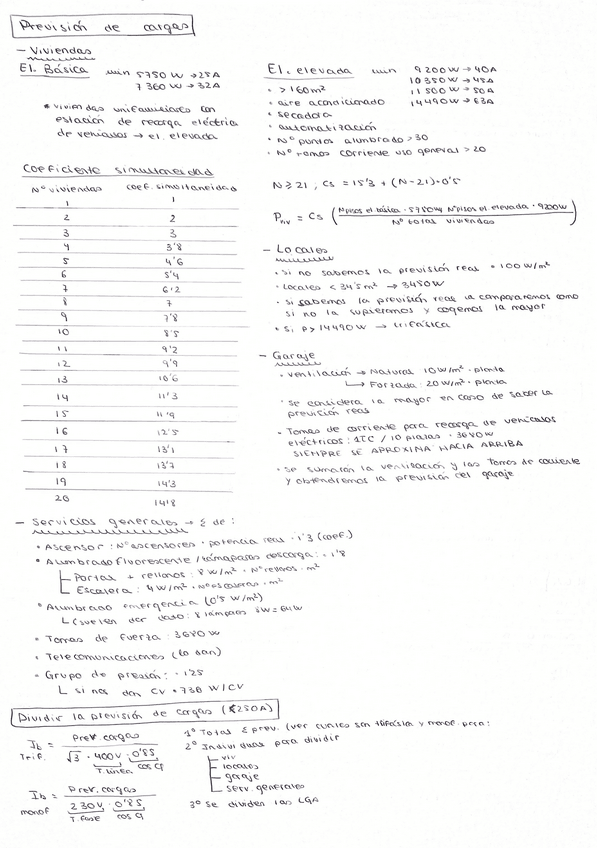 Previsión de cargas
- Viviendas
El. Básica min 5750 W → 25A
7360 W → 32A
* viviendas unifamiliares con
estación de recarga eléctrica
de vehículos → el. elevada
Coeficiente simultaneidad
Nº viviendas coef. simultaneidad
1 1
2 2
3 3
4 3'8
5 4'6
6 5'4
7 6'2
8 7
9 7'8
10 8'5
11 9'2
12 9'9
13 10'6
14 11'3
15 11'9
16 12'5
17 13'1
18 13'7
19 14'3
20 14'8
El. elevada min 9200 W → 40A
10350 W → 45A
11500 W → 50A
14490 W → 63A
• > 160 m²
• aire acondicionado
• secadora
• automatización
• Nº puntos alumbrado > 30
• Nº tomas corriente uso general > 20
N ≥ 21 ; Cs = 15'3 + (N-21)·0'5
Pviv = Cs (Nºpisos el. básica · 5750 + Nºpisos el. elevada · 9200W / Nº totas viviendas)
- Locales
• Si no sabemos la previsión real • 100 W/m²
• Locales < 34'5 m² → 3450 W
• Si sabemos la previsión real la compararemos como
si no la supieramos y cogemos la mayor
• Si P > 14490 W → trifásica
- Garaje
• Ventilación → Natural 10 W/m² · planta
↳ Forzada: 20 W/m² · planta
• Se considera la mayor en caso de saber la
previsión real
• Tomas de corriente para recarga de vehículos
eléctricos: 1TC / 10 plazas · 3680 W
SIEMPRE SE APROXIMA HACIA ARRIBA
• Se sumarán la ventilación y las Tomas de corriente
y obtendremos la previsión del garaje
- Servicios generales → Σ de:
• Ascensor: Nº ascensores · potencia real · 1'3 (coef.)
• Alumbrado fluorescente / lámparas descarga: · 1'8
Portal + rellanos: 8 W/m² · Nº rellanos · m²
Escalera: 4 W/m² · Nº escaleras · m²
• Alumbrado emergencia (0'5 W/m²)
↳ (suelen dar dato: 8 lámparas 8W = 64W
• Tomas de fuerza: 3680 W
• Telecomunicaciones (lo dan)
• Grupo de presión: · 1'25
↳ si nos dan CV • 736 W/CV
Dividir la previsión de cargas (<250A)
Ib = Prev. cargas / √3 · 400V · 0'85
Trif. T. línea cos φ
Ib = Prev. cargas / 230V · 0'85
monof T. fase cos φ
1º Total Σ prev.
2º Individuas para dividir
viv
locales
garaje
serv. generales
3º Se dividen las LGA